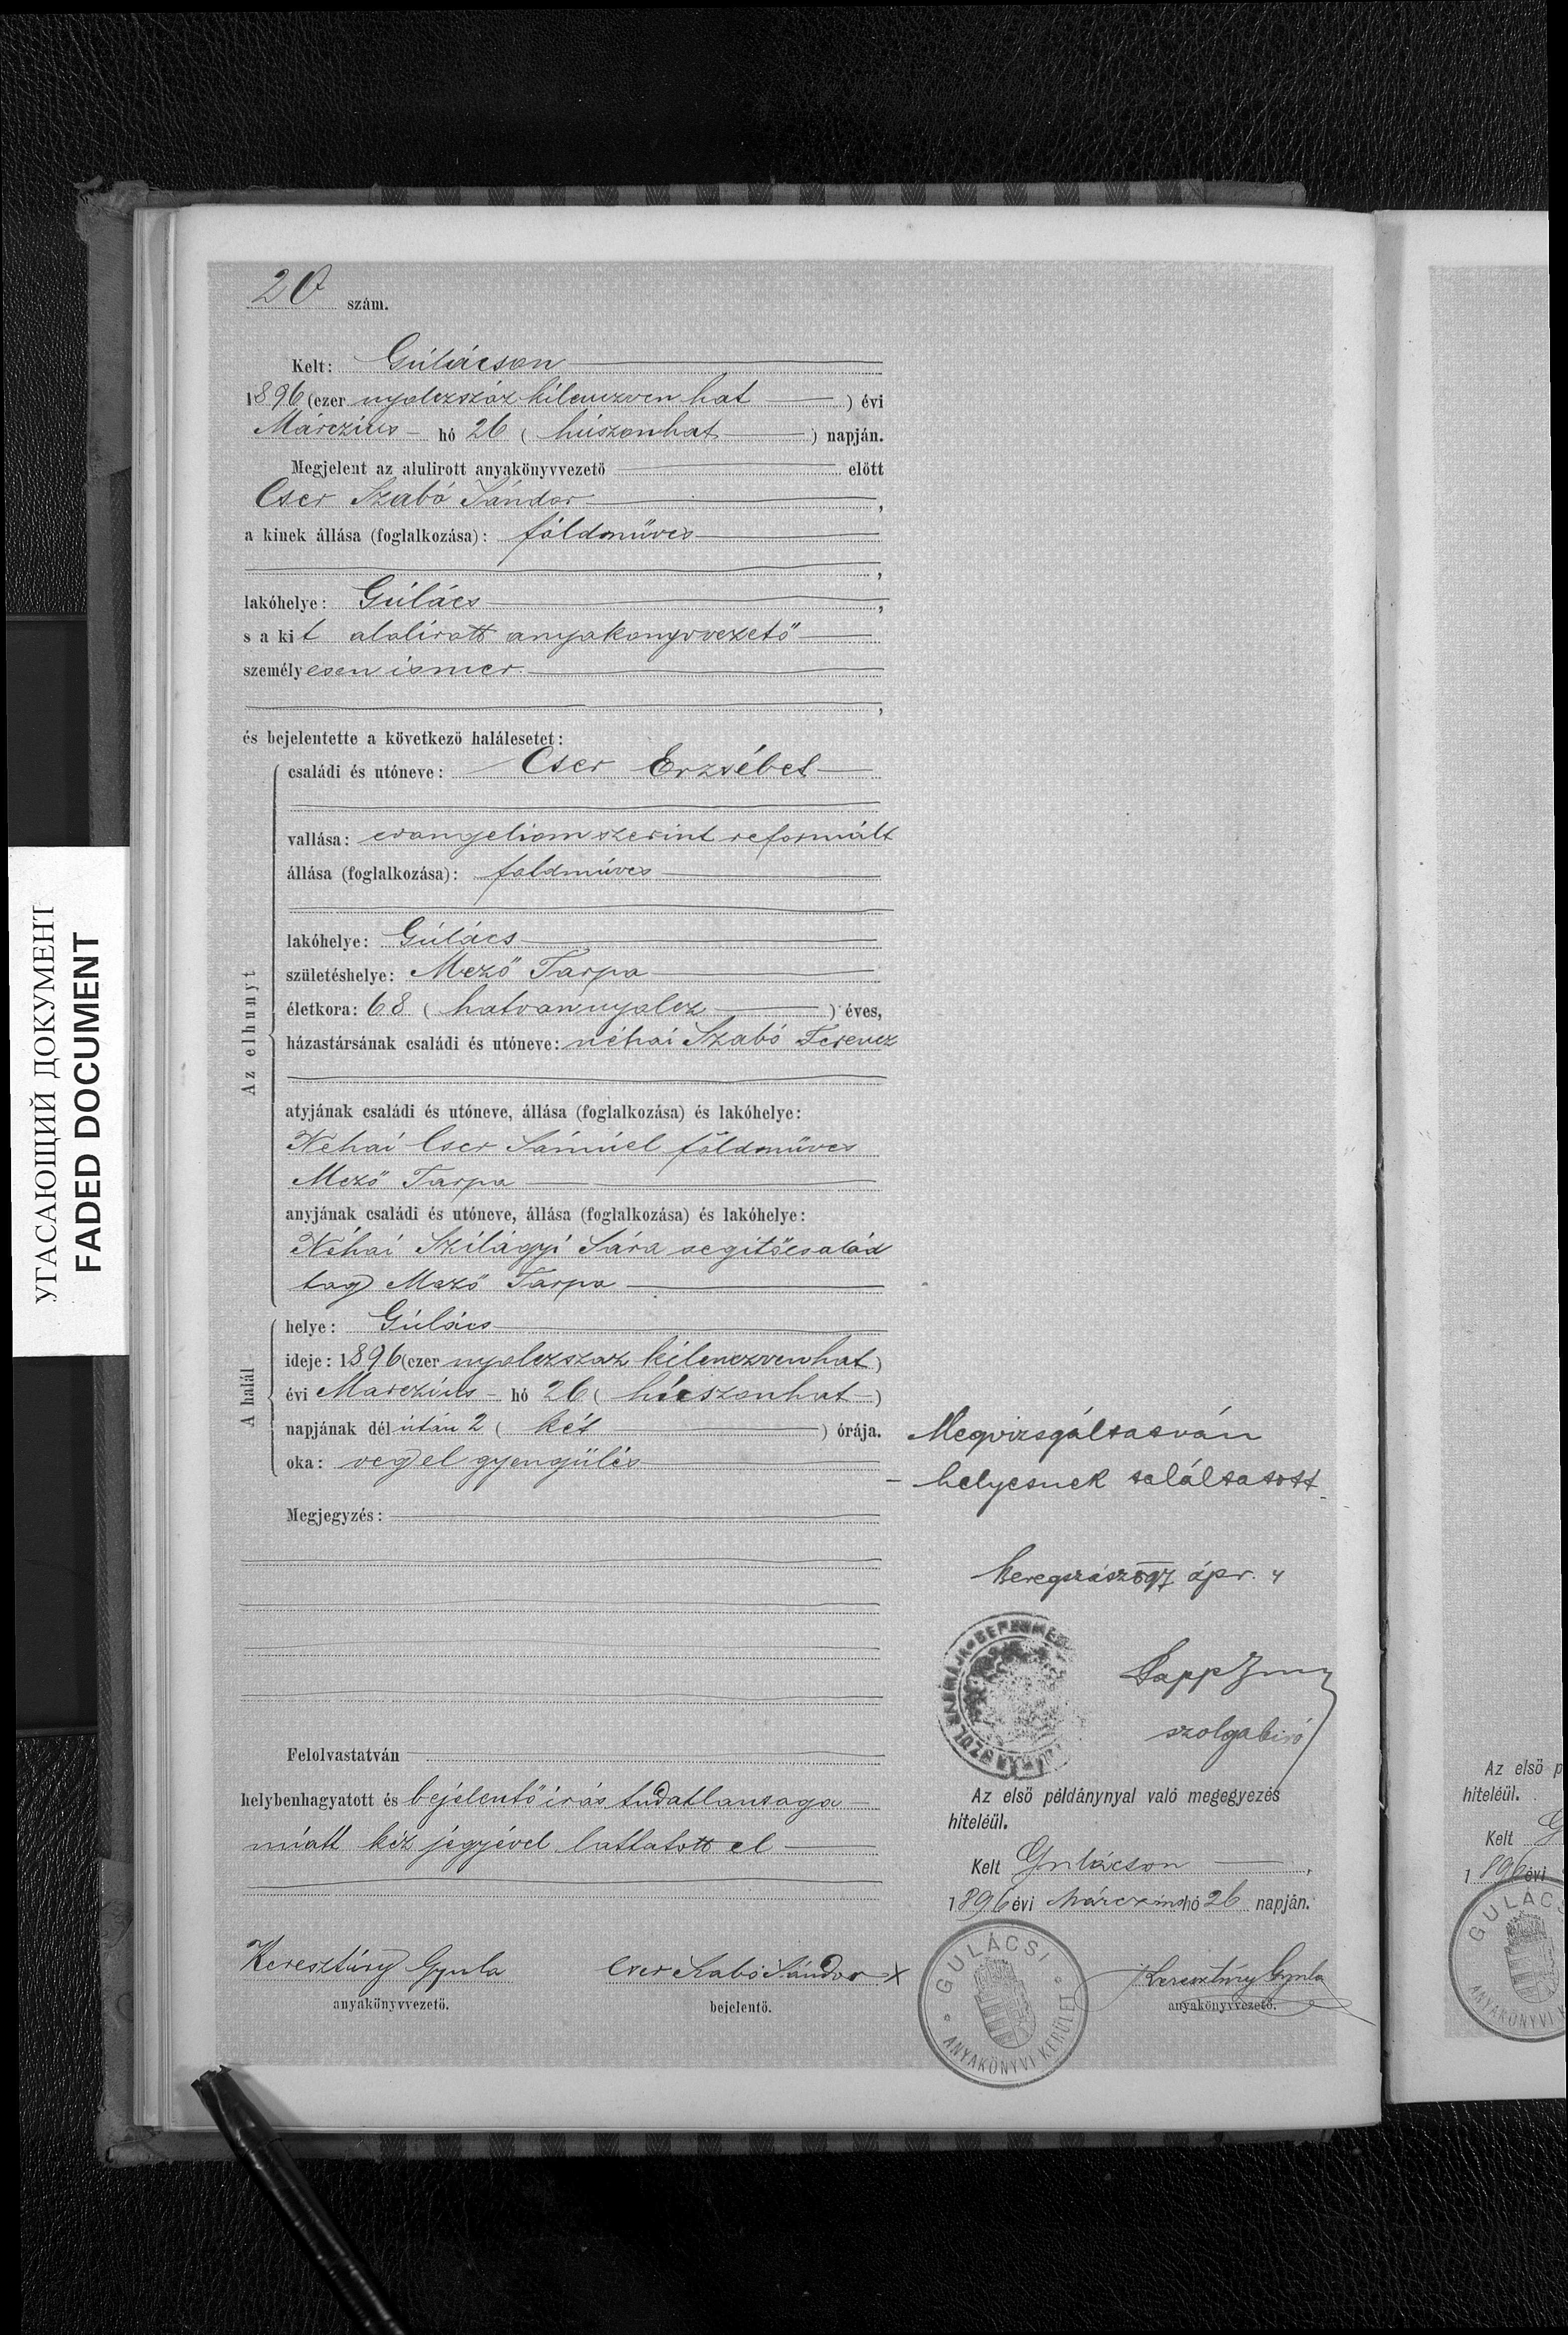 20 szám.
Kelt: Gúlácson
1896 (ezer nyolczszáz kilenczven hat) évi
Márczius hó 26 (húszonhat) napján.
Megjelent az alulirott anyakönyvvezető előtt
Cser Szabó Sándor,
a kinek állása (foglalkozása): földműves
,
lakóhelye: Gúlács,
s a kit alolirott anyakonyvvezető
személyesen ismer.
,
és bejelentette a következő halálesetet:
Az elhunyt
családi és utóneve: Cser Erzsébet
vallása: evangeliom szerint reformált
állása (foglalkozása): foldmúves
lakóhelye: Gúlács
születéshelye: Mező Tarpa
életkora: 68 (hatvannyolcz) éves,
házastársának családi és utóneve: néhai Szabó Ferencz
atyjának családi és utóneve, állása (foglalkozása) és lakóhelye:
Nehai Cser Sámúel földműves
Mező Tarpa
anyjának családi és utóneve, állása (foglalkozása) és lakóhelye:
Néhai Szilágyi Sára segitőcsalád
tag Mező Tarpa
A halál
helye: Gúlács
ideje: 1896 (ezer nyolczszaz kilenczvenhat)
évi Marczius hó 26 (húszonhat)
napjának délútán 2 (két) órája.
oka: vegelgyengülés
Megjegyzés:
Felolvastatván
helybenhagyatott és bejelentő irás tudatlansaga
miatt kéz jegyével lattatott el
Keresztúry Gyula
anyakönyvvezető.
Cser Szabó Sándor x
bejelentő.
Megvizsgáltatván
helyesnek találtatott.
Beregszász 897 ápr. 4
Papp
szolgabiró
Az első példánynyal való megegyezés
hiteléül.
Kelt Gulácson,
1896 évi Márczius hó 26 napján.
GULÁCSI
ANYAKÖNYVI KERÜLET
Keresztúry Gyula
anyakönyvvezető.
Az első p
hiteléül.
Kelt G
1896 évi
GULÁCS
ANYAKÖNYVI K
УГАСАЮЩИЙ ДОКУМЕНТ
FADED DOCUMENT